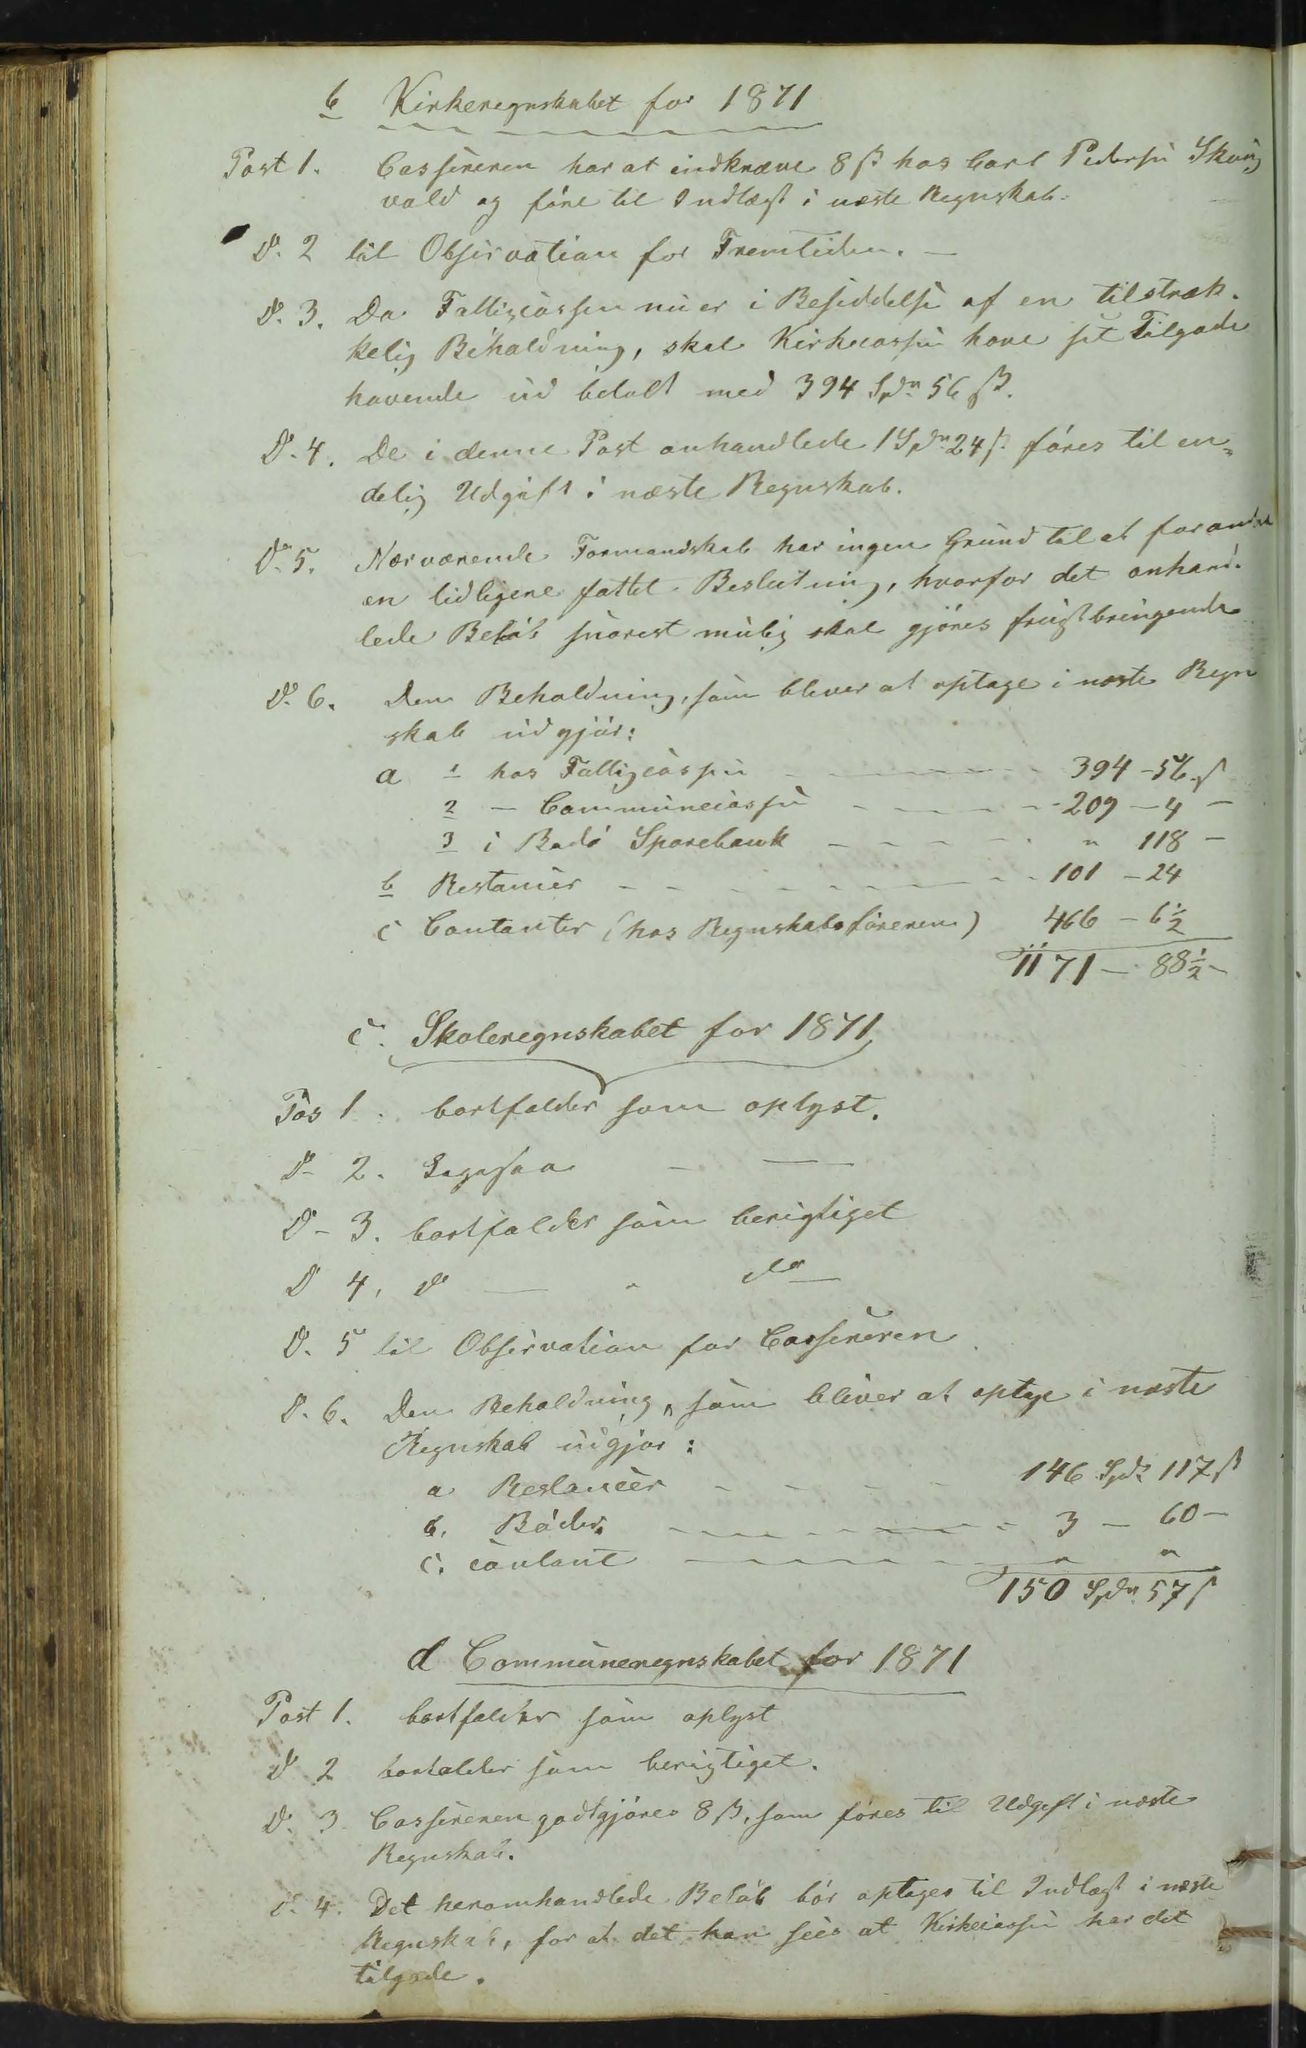 b Kirkeregnskabet for 1871
Post 1. Cassereren har at indkræve 8 ß hos Carl Pedersen
vold og føre til Indtægt i næste Regnskab.
Do. 2 til Observation for Fremtiden. —
Do. 3. Da Fattigcassen nu er i Besiddelse af en tilstræk-
kelig Beholdning, skal Kirkecassen have sit Tilgode
havende ud betalt med 394 Spdr 56 ß.
Do. 4. De i denne Post omhandlede 1 Spdr 24 ß føres til en-
delig Udgift i næste Regnskab.
Do. 5. Nærværende Formandskab har ingen Grund til at forandre
en tidligere fattet Beslutning, hvorfor det omhand-
lede Beløb snarest mulig skal gjøres frugtbringende
Do. 6. Den Beholdning, som bliver at optage i næste Regn
skab udgjør:
a 1 hos Fattigcassen - - - 394 - 56 ß
2 — Communecassen - - - 209 - 4 -
3 i Bodø Sparebank - - - " 118 -
b Restancer - - - 101 - 24
c Contanter (hos Regnskabsføreren) 466 - 6½
1171 - 88½ -
c. Skoleregnskabet for 1871
Pos 1. bortfalder som oplyst.
Do 2. Ligesaa — —
Do - 3. bortfalder som berigtiget
Do 4, do — " do
Do. 5 til Observation for Cassereren
Do. 6. Den Beholdning, som bliver at optage i næste
Regnskab udgjør:
a Restancer - - - 146 Spdr 117 ß
b. Bøder - - - 3 - 60 -
c. contant - - - " "
150 Spdr 57 ß
d Communeregnskabet for 1871
Post 1. bortfalder som oplyst
Do 2 bortfalder som berigtiget.
Do. 3 Cassereren godtgjøres 8 ß, som føres til Udgift i næste
Regnskab.
Do. 4. Det heromhandlede Beløb bør optages til Indtægt i næste
Regnskab, for at det kan sees at Kirkecassen har det
tilgode.